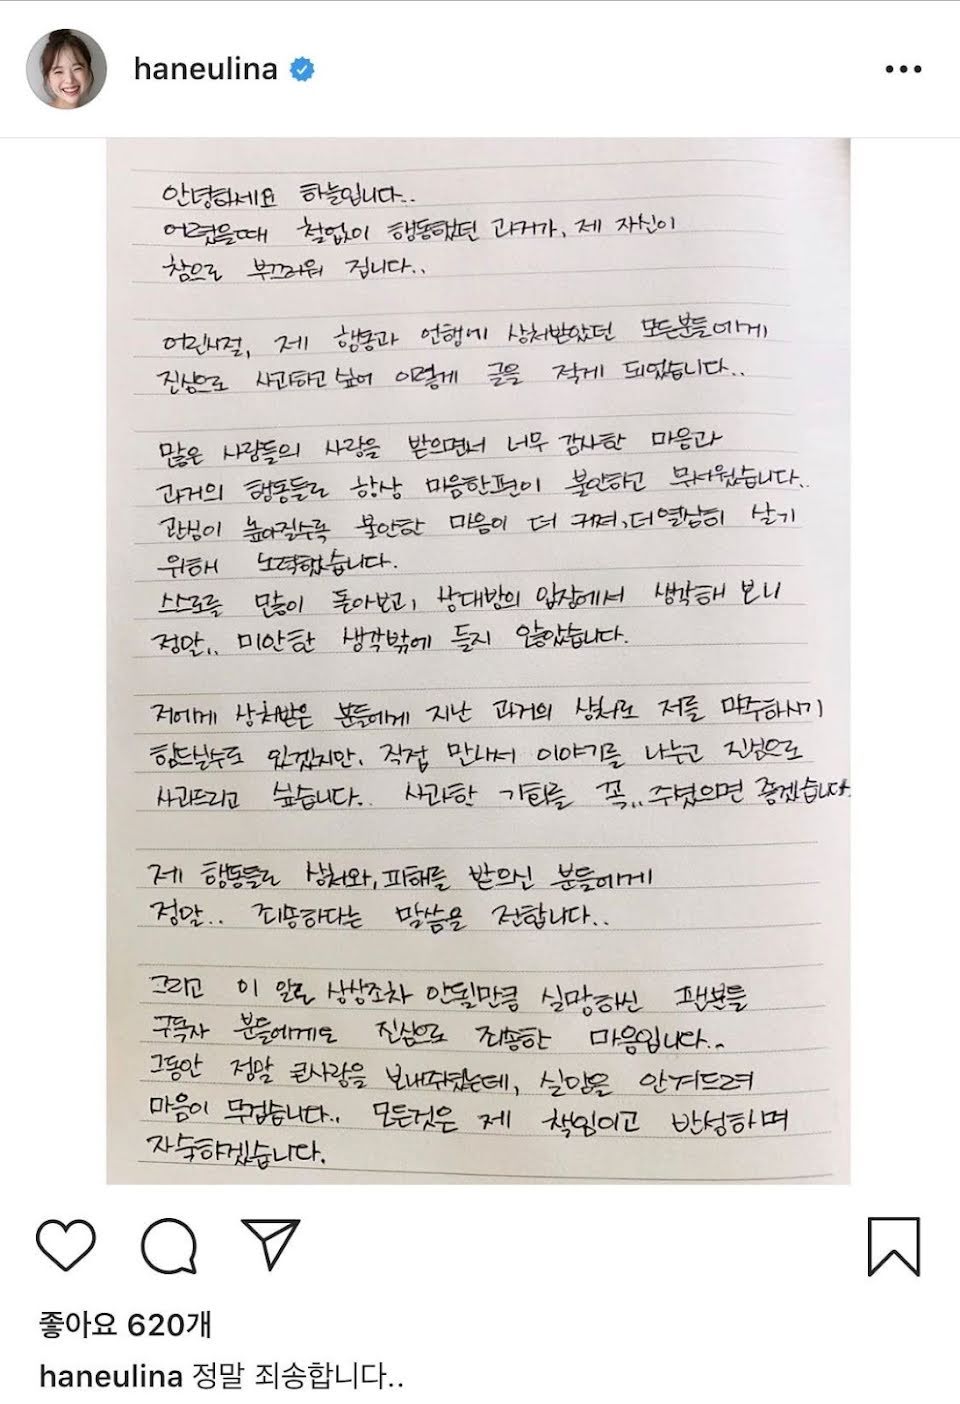 haneulina
안녕하세요 하늘입니다..
어렸을때 철없이 행동했던 과거가, 제 자신이
참으로 부끄러워 집니다..
어린시절, 제 행동과 언행에 상처받았던 모든분들에게
진심으로 사과하고 싶어 이렇게 글을 적게 되었습니다..
많은 사람들의 사랑을 받으면서 너무 감사한 마음과
과거의 행동들로 항상 마음한편이 불안하고 무서웠습니다..
관심이 높아질수록 불안한 마음이 더 커져, 더 열심히 살기
위해 노력했습니다.
스스로를 많이 돌아보고, 상대방의 입장에서 생각해 보니
정말.. 미안한 생각밖에 들지 않았습니다.
저에게 상처받은 분들에게 지난 과거의 상처로 저를 마주하시기
힘드실수도 있겠지만, 직접 만나서 이야기를 나누고 진심으로
사과드리고 싶습니다.. 사과할 기회를 꼭.. 주셨으면 좋겠습니다.
제 행동들로 상처와, 피해를 받으신 분들에게
정말.. 죄송하다는 말씀을 전합니다..
그리고 이 일로 상상조차 안될만큼 실망하신 팬분들
구독자 분들에게도 진심으로 죄송한 마음입니다..
그동안 정말 큰사랑을 보내주셨는데, 실망을 안겨드려
마음이 무겁습니다.. 모든것은 제 책임이고 반성하며
자숙하겠습니다.
좋아요 620개
haneulina 정말 죄송합니다..